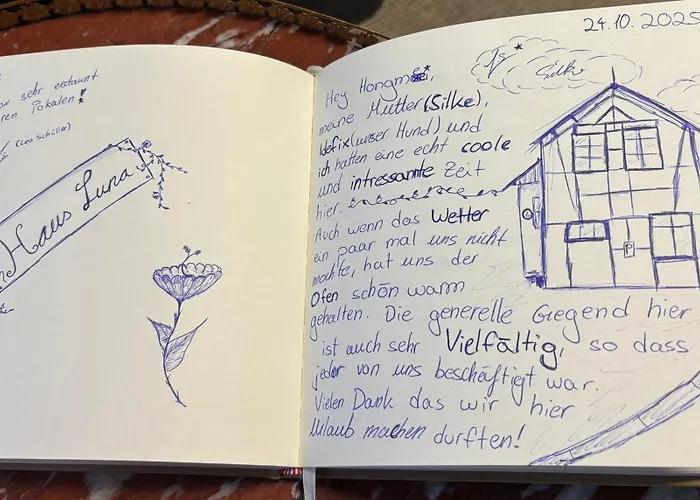 sehr erstaunt
Pokalen!
(Leo Schüller)
Haus Luna
24.10.2025
Silke
Hey Hongmei,
meine Mutter (Silke),
Idefix (unser Hund) und
ich hatten eine echt coole
und intressante Zeit
hier.
Auch wenn das Wetter
ein paar mal uns nicht
mochte, hat uns der
Ofen schön warm
gehalten. Die generelle Gegend hier
ist auch sehr Vielfältig, so dass
jeder von uns beschäftigt war.
Vielen Dank das wir hier
Urlaub machen durften!
P